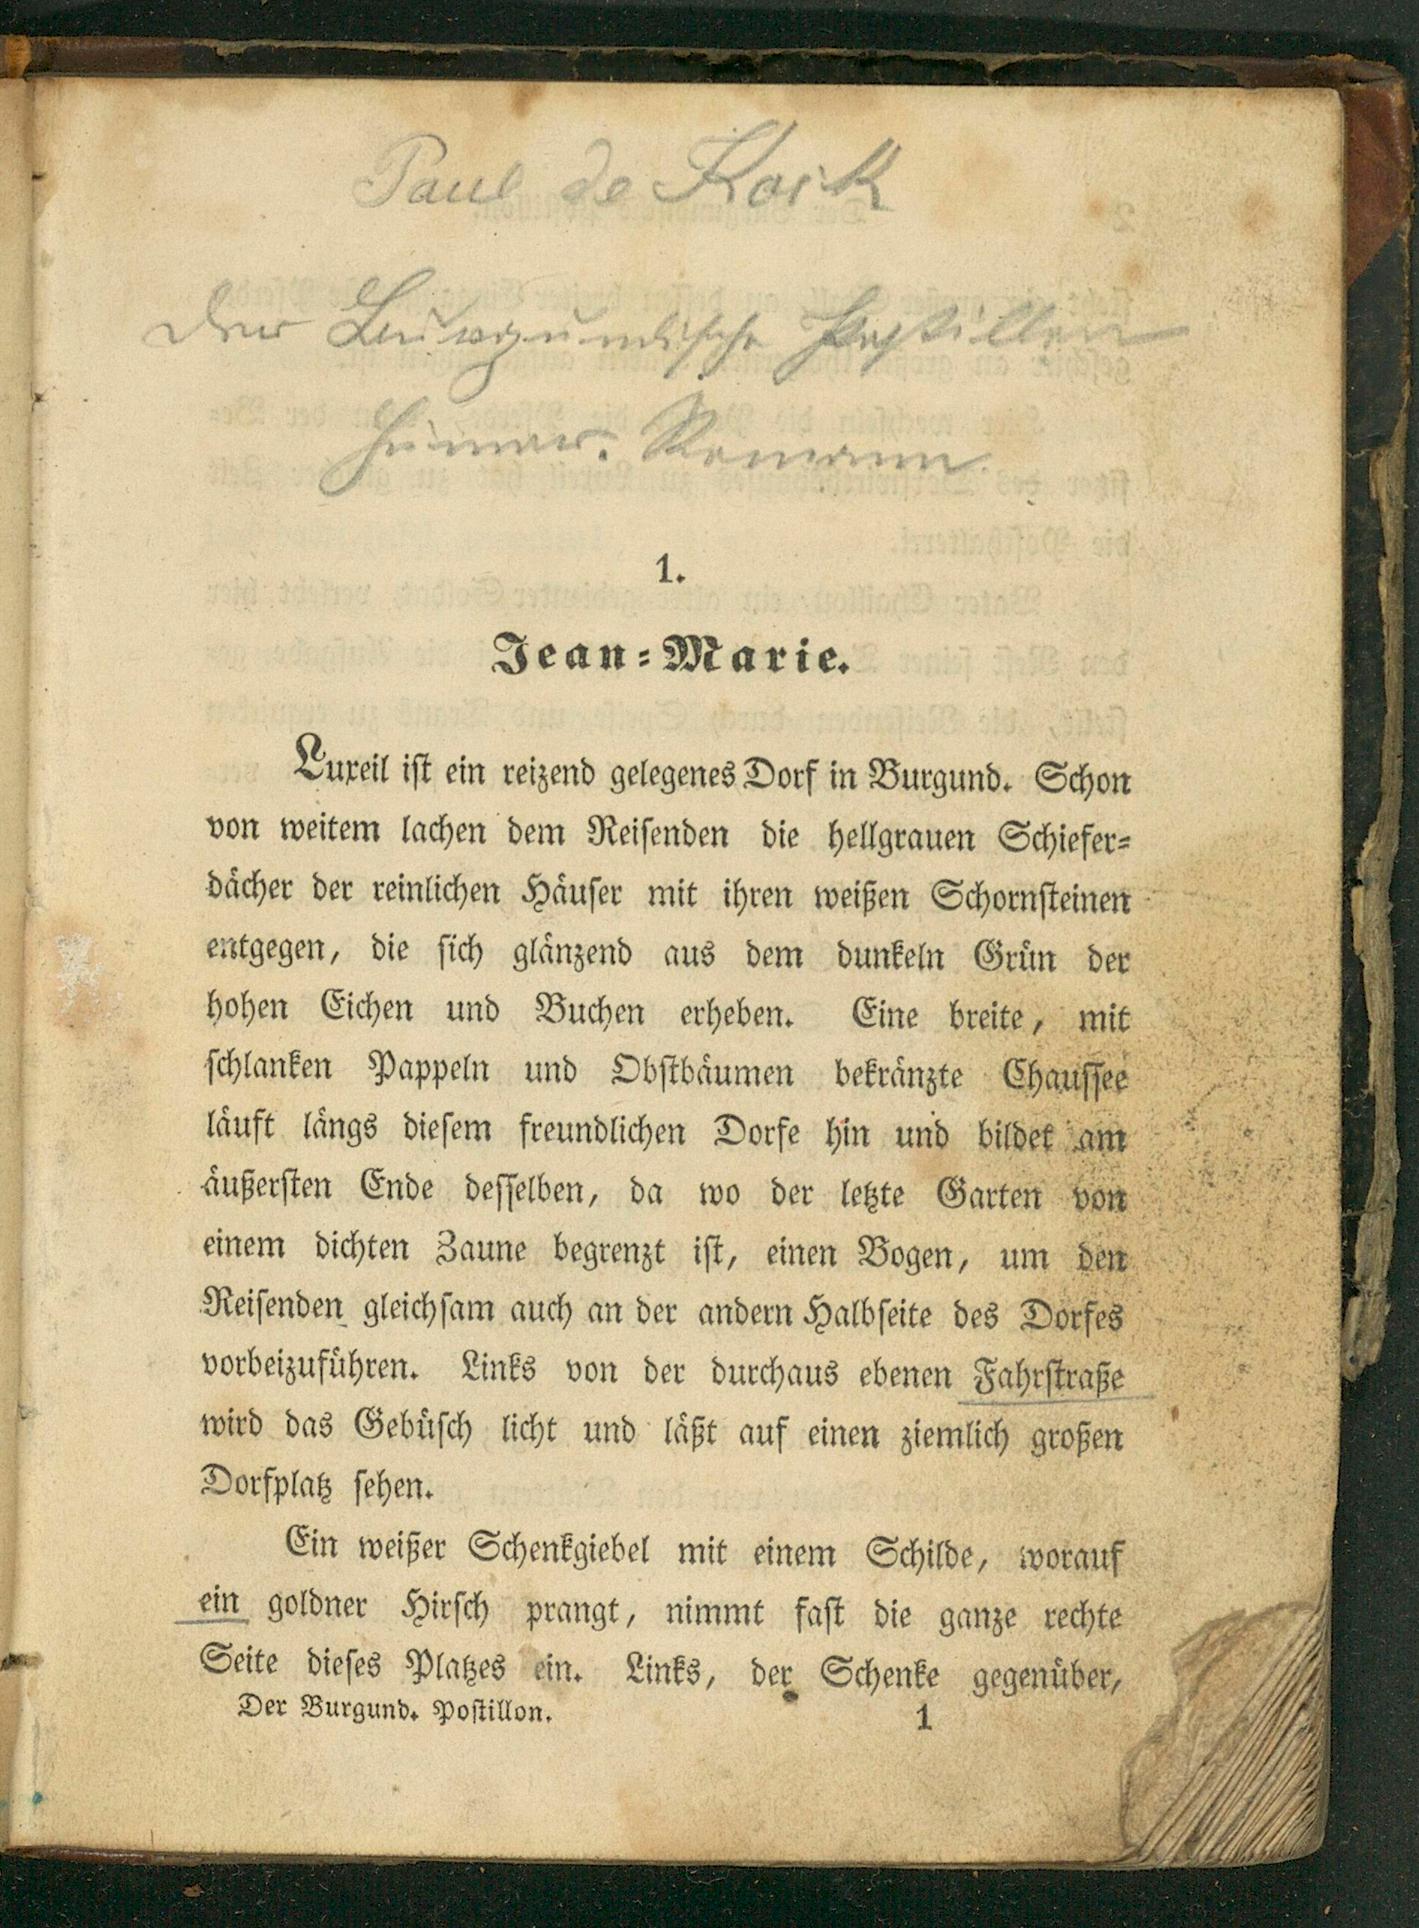 Paul de Kock
Der Burgundische Postillon
humor. Roman
1.
Jean-Marie.
Luxeil ist ein reizend gelegenes Dorf in Burgund. Schon
von weitem lachen dem Reisenden die hellgrauen Schiefer-
dächer der reinlichen Häuser mit ihren weißen Schornsteinen
entgegen, die sich glänzend aus dem dunkeln Grün der
hohen Eichen und Buchen erheben. Eine breite, mit
schlanken Pappeln und Obstbäumen bekränzte Chaussee
läuft längs diesem freundlichen Dorfe hin und bildet am
äußersten Ende desselben, da wo der letzte Garten von
einem dichten Zaune begrenzt ist, einen Bogen, um den
Reisenden gleichsam auch an der andern Halbseite des Dorfes
vorbeizuführen. Links von der durchaus ebenen Fahrstraße
wird das Gebüsch licht und läßt auf einen ziemlich großen
Dorfplatz sehen.
Ein weißer Schenkgiebel mit einem Schilde, worauf
ein goldner Hirsch prangt, nimmt fast die ganze rechte
Seite dieses Platzes ein. Links, der Schenke gegenüber,
Der Burgund. Postillon. 1